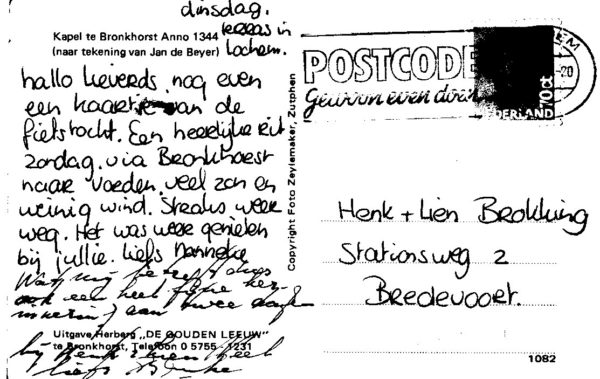 dinsdag.
in
Lochem.
Kapel te Bronkhorst Anno 1344
(naar tekening van Jan de Beyer)
hallo lieverds, nog even
een kaartje van de
fietstocht. Een heerlijke rit
zondag. via Bronkhorst
naar Voorden. veel zon en
weinig wind. Straks weer
weg. Het was weer genieten
bij jullie. Liefs Hanneke
Wat mij betreft dus
ook een heel fijne her-
aan twee dagen
bij Henk + Lien heel
liefs
Uitgave Herberg „DE GOUDEN LEEUW"
te Bronkhorst, Telefoon 0 5755 - 1231
Copyright Foto Zeylemaker, Zutphen
POSTCODE
Gewoon even doen
EM
-20
70ct
NEDERLAND
Henk + Lien Brokking
Stationsweg 2
Bredevoort.
1082